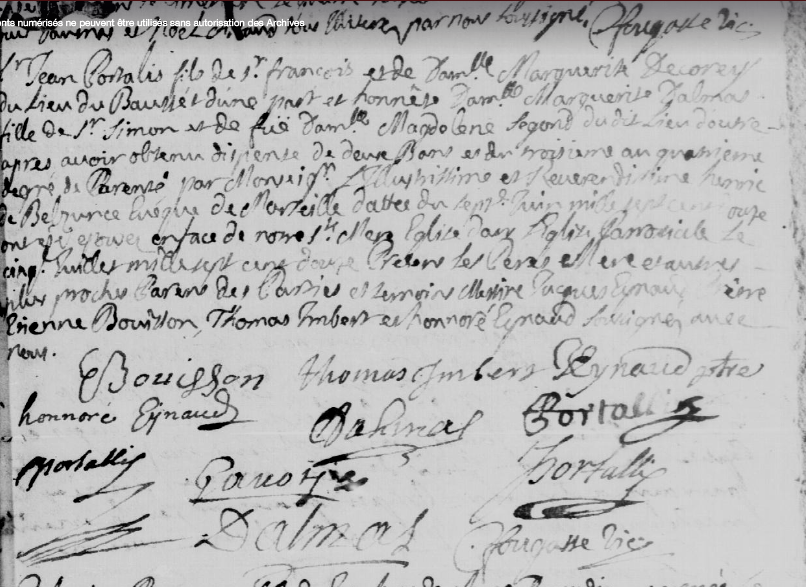 nts numérisés ne peuvent être utilisés sans autorisation des Archives
par nous soussigné, Fougasse Vic
Sr Jean Portalis fils de Sr francois et de Damlle Marguerite Decoreis
du Lieu du Bausset d'une part et honnête Damlle Marguerite Dalmas
fille de Sr Simon et de füe Damlle Magdelene Segond du dit Lieu d'autre
apres avoir obtenu dispense de deux Bans et du troisieme au quatrieme
degré de Parenté par Monseigr Illustrissime et Reverendissime henric
de Belzunce Eveque de Marseille dattée du Juin mille sept cens
ont été en face de notre Ste Mere Eglise dans l'Eglise Parroissiale Le
cinqe Juillet mille sept cens douze Presens les Peres et Mere et autres
plus proches Parens des Parties et temoins Messire Jacques Eynaud Prêtre
Etienne Bouisson, Thomas Imbert et honnoré Eynaud soussignez avec
nous.
EBouisson thomas Imbert Eynaud ptre
honnoré Eynaud Dalmas Portallis
Portallis Portallis
Dalmas Fougasse Vic